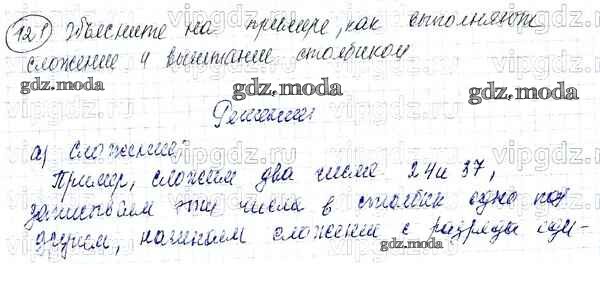 121 Объясните на примере, как выполняют
сложение и вычитание столбиком
Решение:
а) Сложение:
Пример, сложим два числа 24 и 37,
записываем эти числа в столбик одно под
другим, начинаем сложение с разряда еди-
vipgdz.moda
gdz.moda